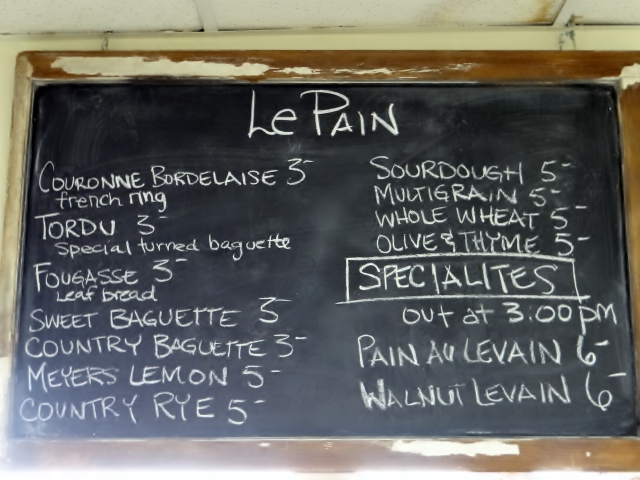 Le Pain
Couronne Bordelaise 3-
french ring
Tordu 3-
Special turned baguette
Fougasse 3-
Leaf bread
Sweet Baguette 3-
Country Baguette 3-
Meyers Lemon 5-
Country Rye 5-
Sourdough 5-
Multigrain 5-
Whole Wheat 5-
Olive & Thyme 5-
Specialites
out at 3:00pm
Pain au Levain 6-
Walnut Levain 6-